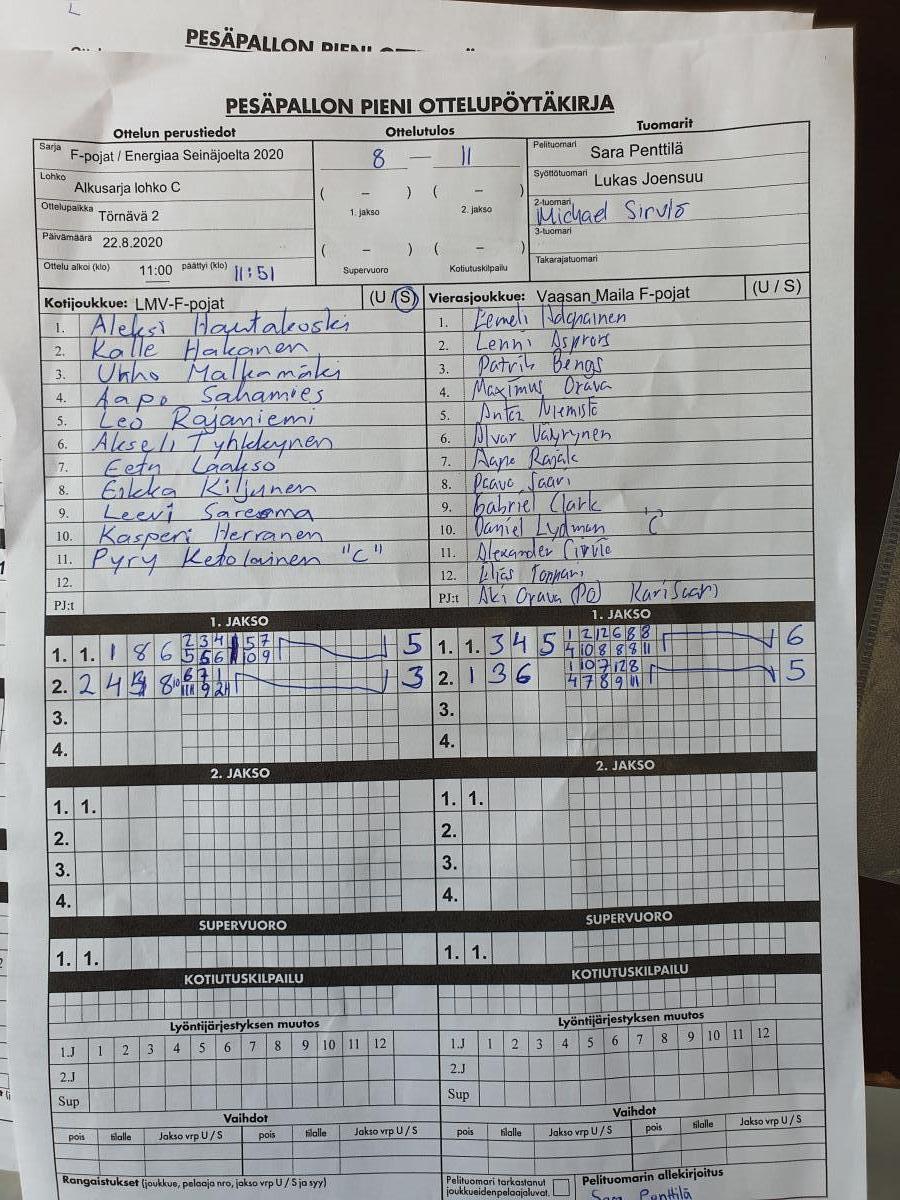 PESÄPALLON PIENI OTTELUPÖYTÄKIRJA
Ottelun perustiedot
Ottelutulos
Tuomarit
Sarja F-pojat / Energiaa Seinäjoelta 2020
Lohko Alkusarja lohko C
Ottelupaikka Törnävä 2
Päivämäärä 22.8.2020
Ottelu alkoi (klo) 11:00 päättyi (klo) 11:51
8 — 11
( – ) ( – )
1. jakso 2. jakso
( – ) ( – )
Supervuoro Kotiutuskilpailu
Pelituomari Sara Penttilä
Syöttötuomari Lukas Joensuu
2-tuomari Michael Sirviö
3-tuomari
Takarajatuomari
Kotijoukkue: LMV-F-pojat (U / S)
1. Aleksi Hautakoski
2. Kalle Hakanen
3. Ukko Malkamäki
4. Aapo Sahamies
5. Leo Rajaniemi
6. Akseli Tyhkkynen
7. Eetu Laakso
8. Eikka Kiljunen
9. Leevi Saresma
10. Kasperi Herranen
11. Pyry Ketolainen "C"
12.
PJ:t
Vierasjoukkue: Vaasan Maila F-pojat (U / S)
1. Eemeli
2. Lenni Asprors
3. Patrik Bengs
4. Maximus Orava
5. Niemistö
6. Alvar Väyrynen
7. Aapo
8. Paavo Saari
9. Gabriel Clark
10. Daniel Lydman "C"
11. Alexander Sirviö
12.
PJ:t Aki Orava (PJ) Kari Saari
1. JAKSO
1. 1. 1 8 6 5
2. 2 4 3
3.
4.
1. JAKSO
1. 1. 3 4 5 6
2. 1 3 6 5
3.
4.
2. JAKSO
1. 1.
2.
3.
4.
2. JAKSO
1. 1.
2.
3.
4.
SUPERVUORO
1. 1.
SUPERVUORO
1. 1.
KOTIUTUSKILPAILU
KOTIUTUSKILPAILU
Lyöntijärjestyksen muutos
1.J 1 2 3 4 5 6 7 8 9 10 11 12
2.J
Sup
Lyöntijärjestyksen muutos
1.J 1 2 3 4 5 6 7 8 9 10 11 12
2.J
Sup
Vaihdot
pois tilalle Jakso vrp U / S pois tilalle Jakso vrp U / S
Vaihdot
pois tilalle Jakso vrp U / S pois tilalle Jakso vrp U / S
Rangaistukset (joukkue, pelaaja nro, jakso vrp U / S ja syy)
Pelituomari tarkastanut
joukkueidenpelaajaluvat.
Pelituomarin allekirjoitus
Sara Penttilä